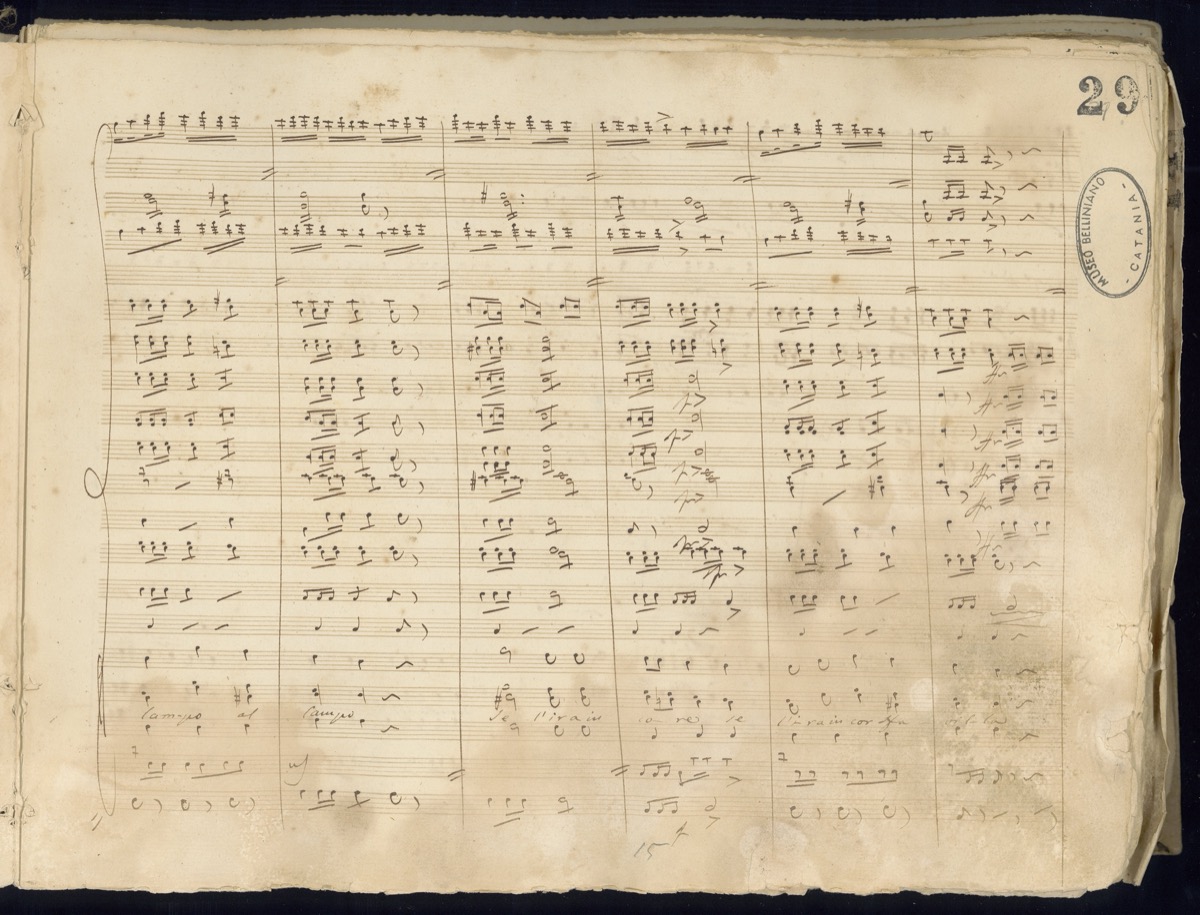 29
MUSEO BELLINIANO
- CATANIA -
Campo al Campo Se l'ira in co re se l'ira in cor
15